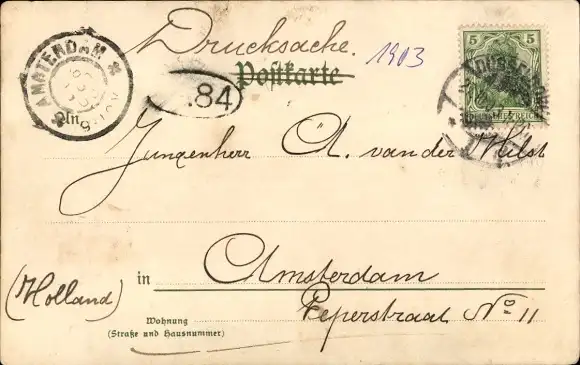 Drucksache.
1903
5 5
AMSTERDAM
Postkarte
.84
An
Jungenherr A. van der Hilst
in Amsterdam
(Holland)
Peperstraat No. 11
Wohnung
(Straße und Hausnummer)